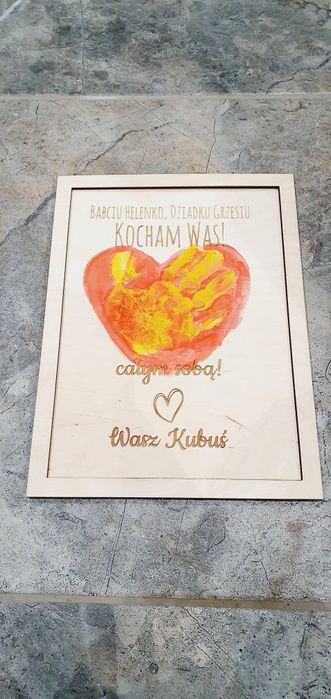 Babciu Helenko, Dziadku Grzesiu
Kocham Was!
całym sobą!
Wasz Kubuś